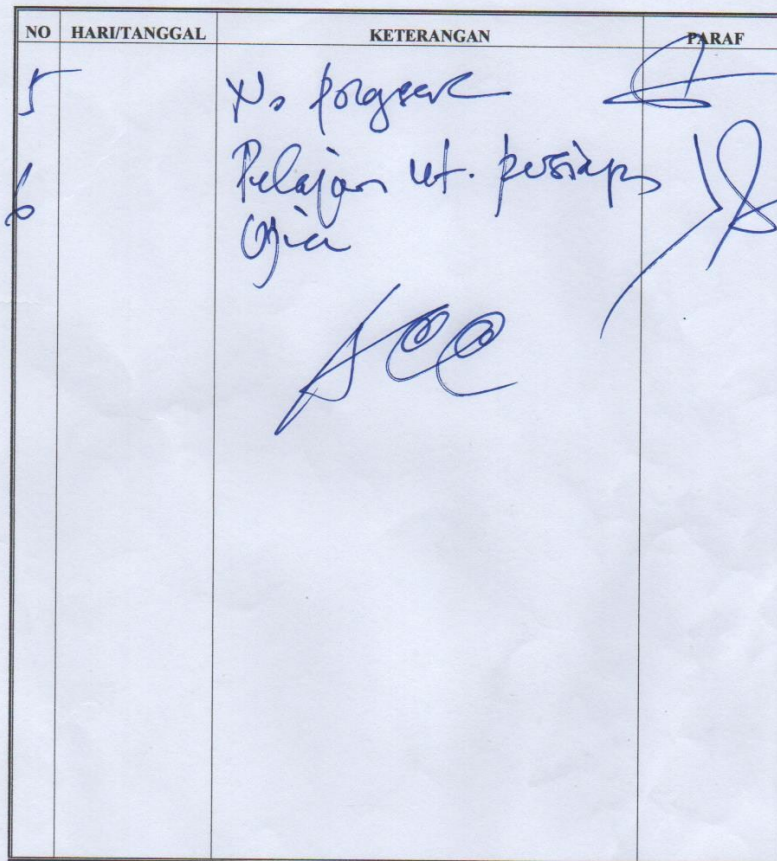 NO HARI/TANGGAL KETERANGAN PARAF
5 No
6 Pelajari ut. persiapan
Ujian
ACC